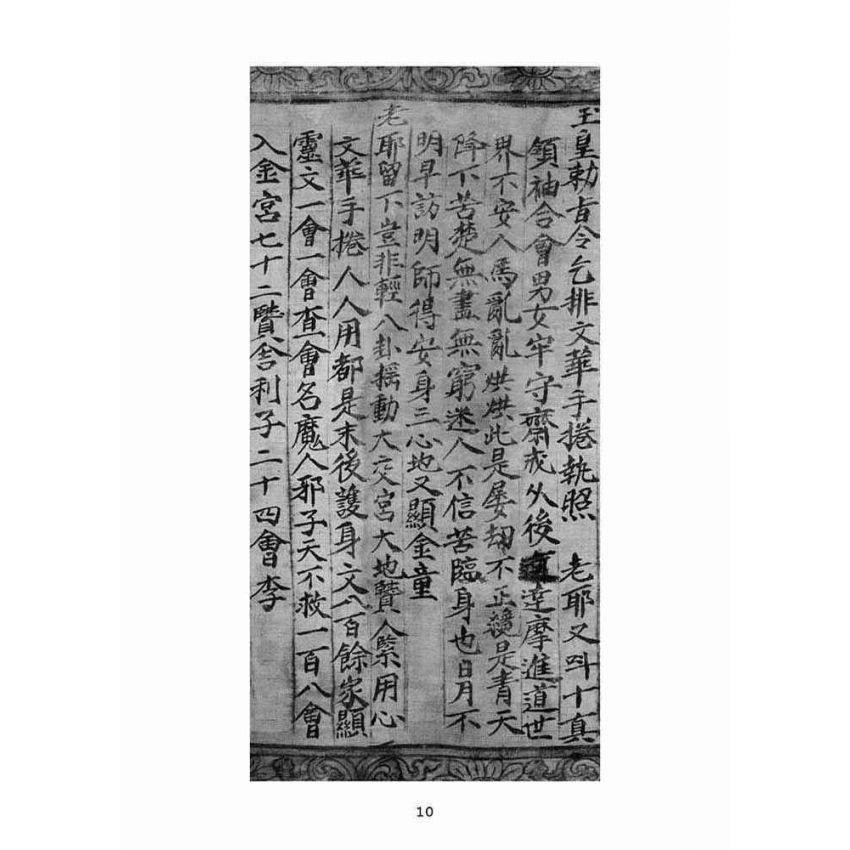 玉皇勅旨令乞排文華手捲執照 老耶又呌十真
領袖合會男女牢守齋戒久後達摩進道世
界不安人馬亂亂烘烘此是屡劫不正纔是青天
降下苦楚無盡無窮迷人不信苦臨身也日月不
明早訪明師得安身三心地又顯金童
老耶留下豈非輕八卦揺動大交宮大地賢人緊用心
文華手捲人人用都是末後護身文八百餘家顯
靈文一會一會查會名魔人邪子天不救一百八會
入金宮七十二賢舍利子二十四會李
10